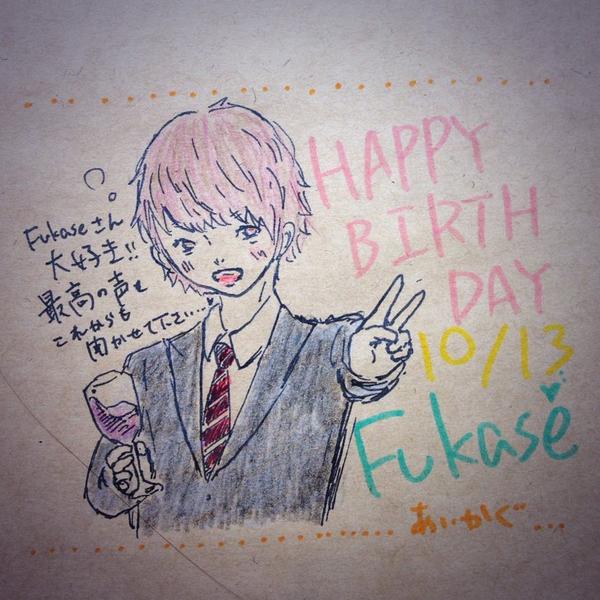 HAPPY
BIRTH
DAY
10/13
Fukase
Fukaseさん
大好き!!
最高の声を
これからも
聞かせて下さ....